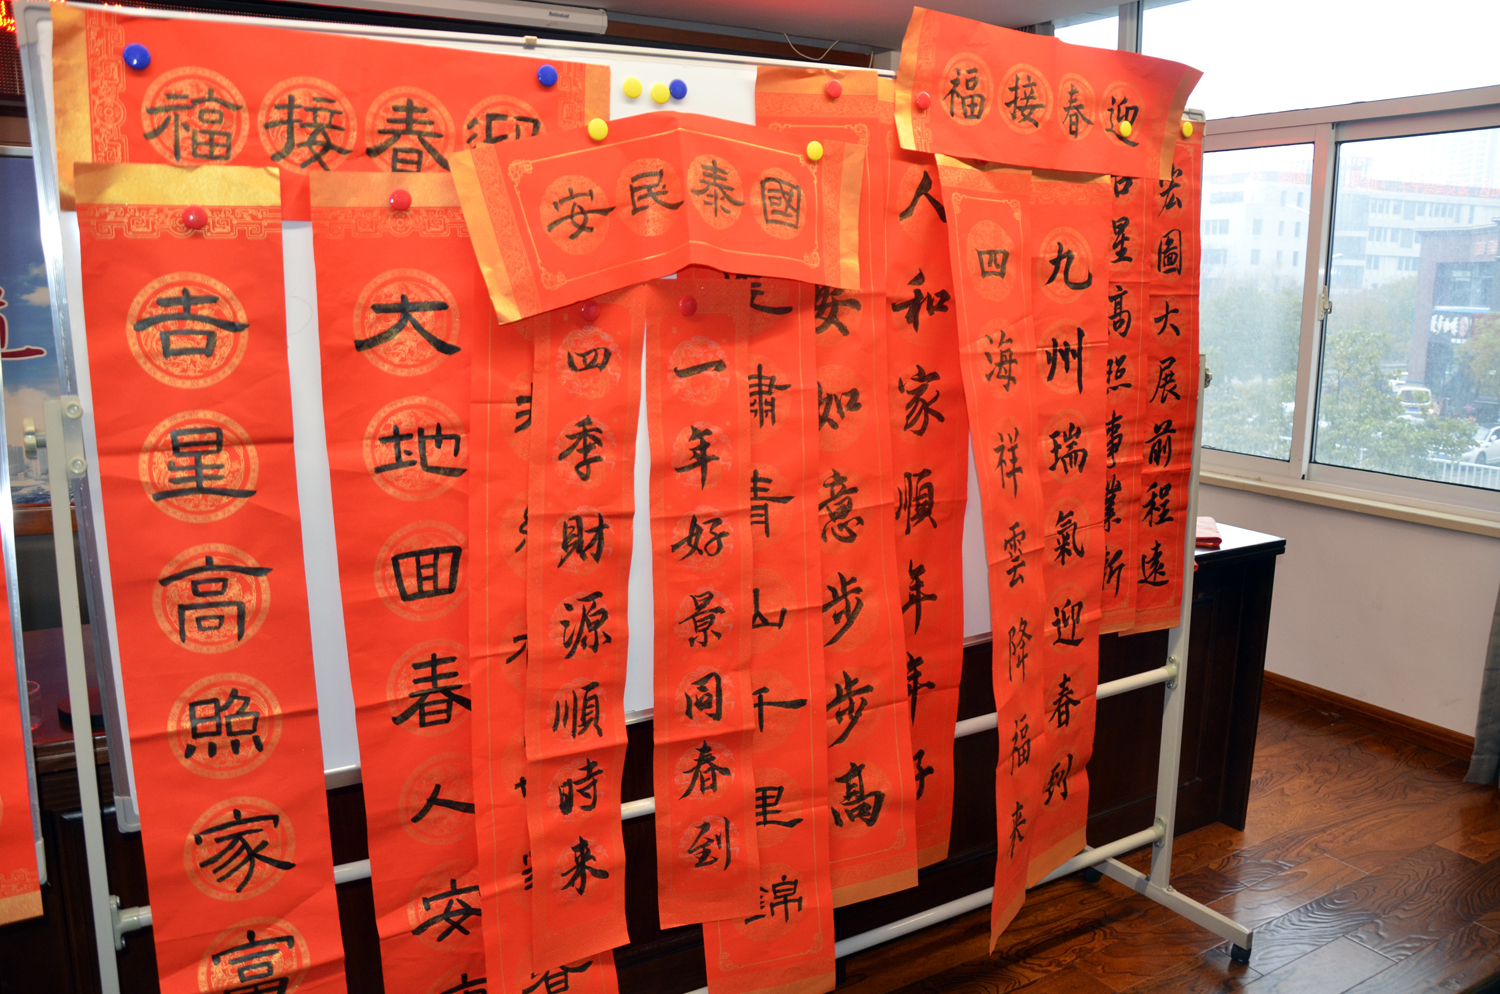 福接春迎
吉星高照家富
大地回春人安
安民泰國
四季財源順時来
一年好景同春到
肅青山千里錦
安如意步步高
人和家順年年好
福接春迎
四海祥雲降福来
九州瑞氣迎春到
吉星高照事業新
宏圖大展前程遠